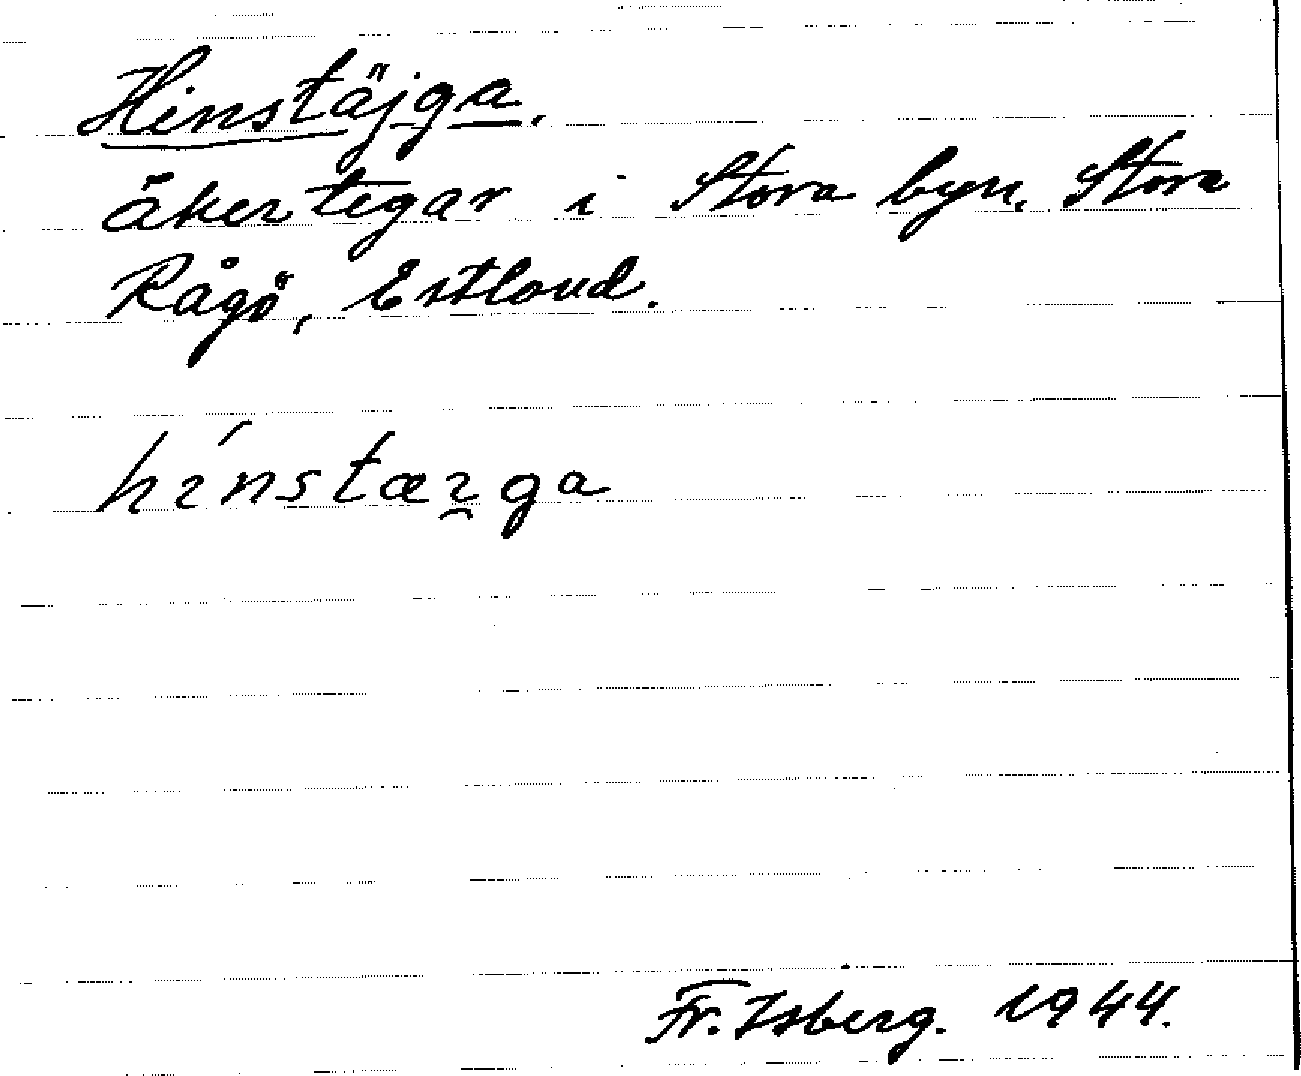 Hinstäjga.
åkertegar i Stora byn. Stora
Rågö, Estland.
hı́nstæı̯ga
Fr. Isberg. 1944.